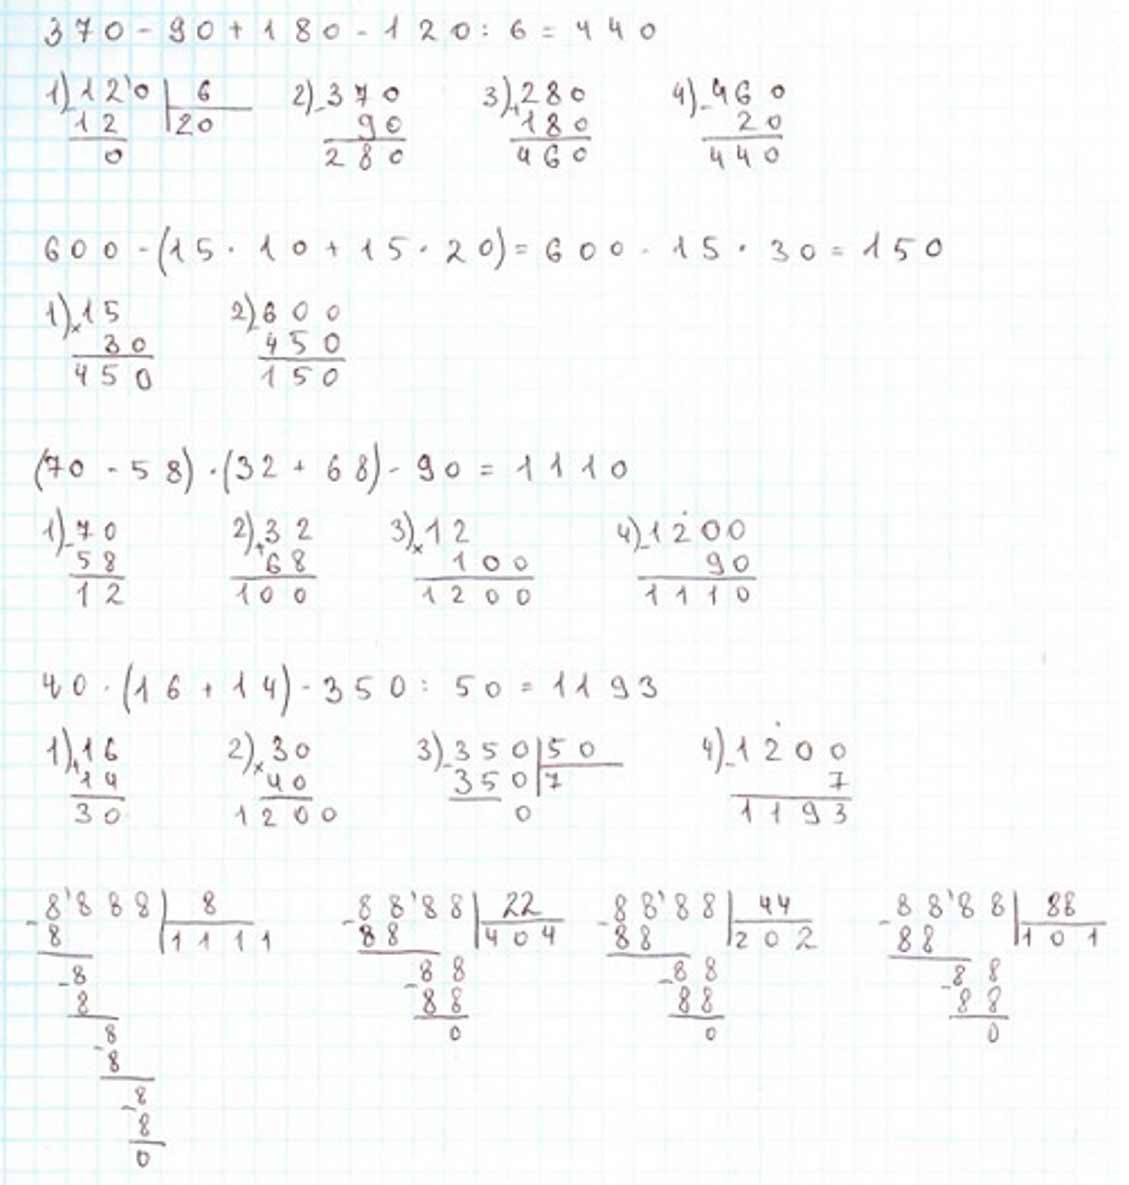 370 - 90 + 180 - 120 : 6 = 440
1) - 12'0 | 6 2) - 370 3) + 280 4) - 460
12 | 20 90 180 20
0 280 460 440
600 - (15 · 10 + 15 · 20) = 600 - 15 · 30 = 150
1) × 15 2) - 600
30 450
450 150
(70 - 58) · (32 + 68) - 90 = 1110
1) - 70 2) + 32 3) × 12 4) - 1200
58 68 100 90
12 100 1200 1110
40 · (16 + 14) - 350 : 50 = 1193
1) + 16 2) × 30 3) - 350 | 50 4) - 1200
14 40 350 | 7 7
30 1200 0 1193
- 8'888 | 8 - 88'88 | 22 - 88'88 | 44 - 88'88 | 88
8 | 1111 88 | 404 88 | 202 88 | 101
- 8 - 88 - 88 - 88
8 88 88 88
- 8 0 0 0
8
- 8
8
0